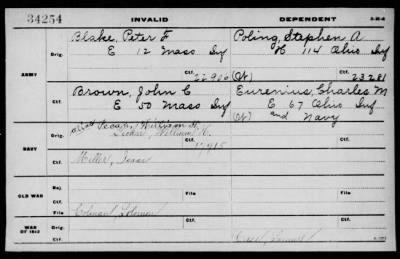 34254 INVALID DEPENDENT 3-a-4
Blake, Peter F Poling, Stephen A
Orig. E 12 Mass Inf H 114 Ohio Inf
ARMY 22906 (N) 23281
Ctf.
Brown, John C Eurenius, Charles M
Ctf. E 50 Mass Inf E 67 Ohio Inf
(N) and Navy
alias William H.
Orig. William H.
NAVY 17915
Miller, Isaac
Ctf.
Orig. File File
OLD WAR
Ctf. Colman, Solomon File File
WAR OF 1812 Orig.
Ctf. Samuel